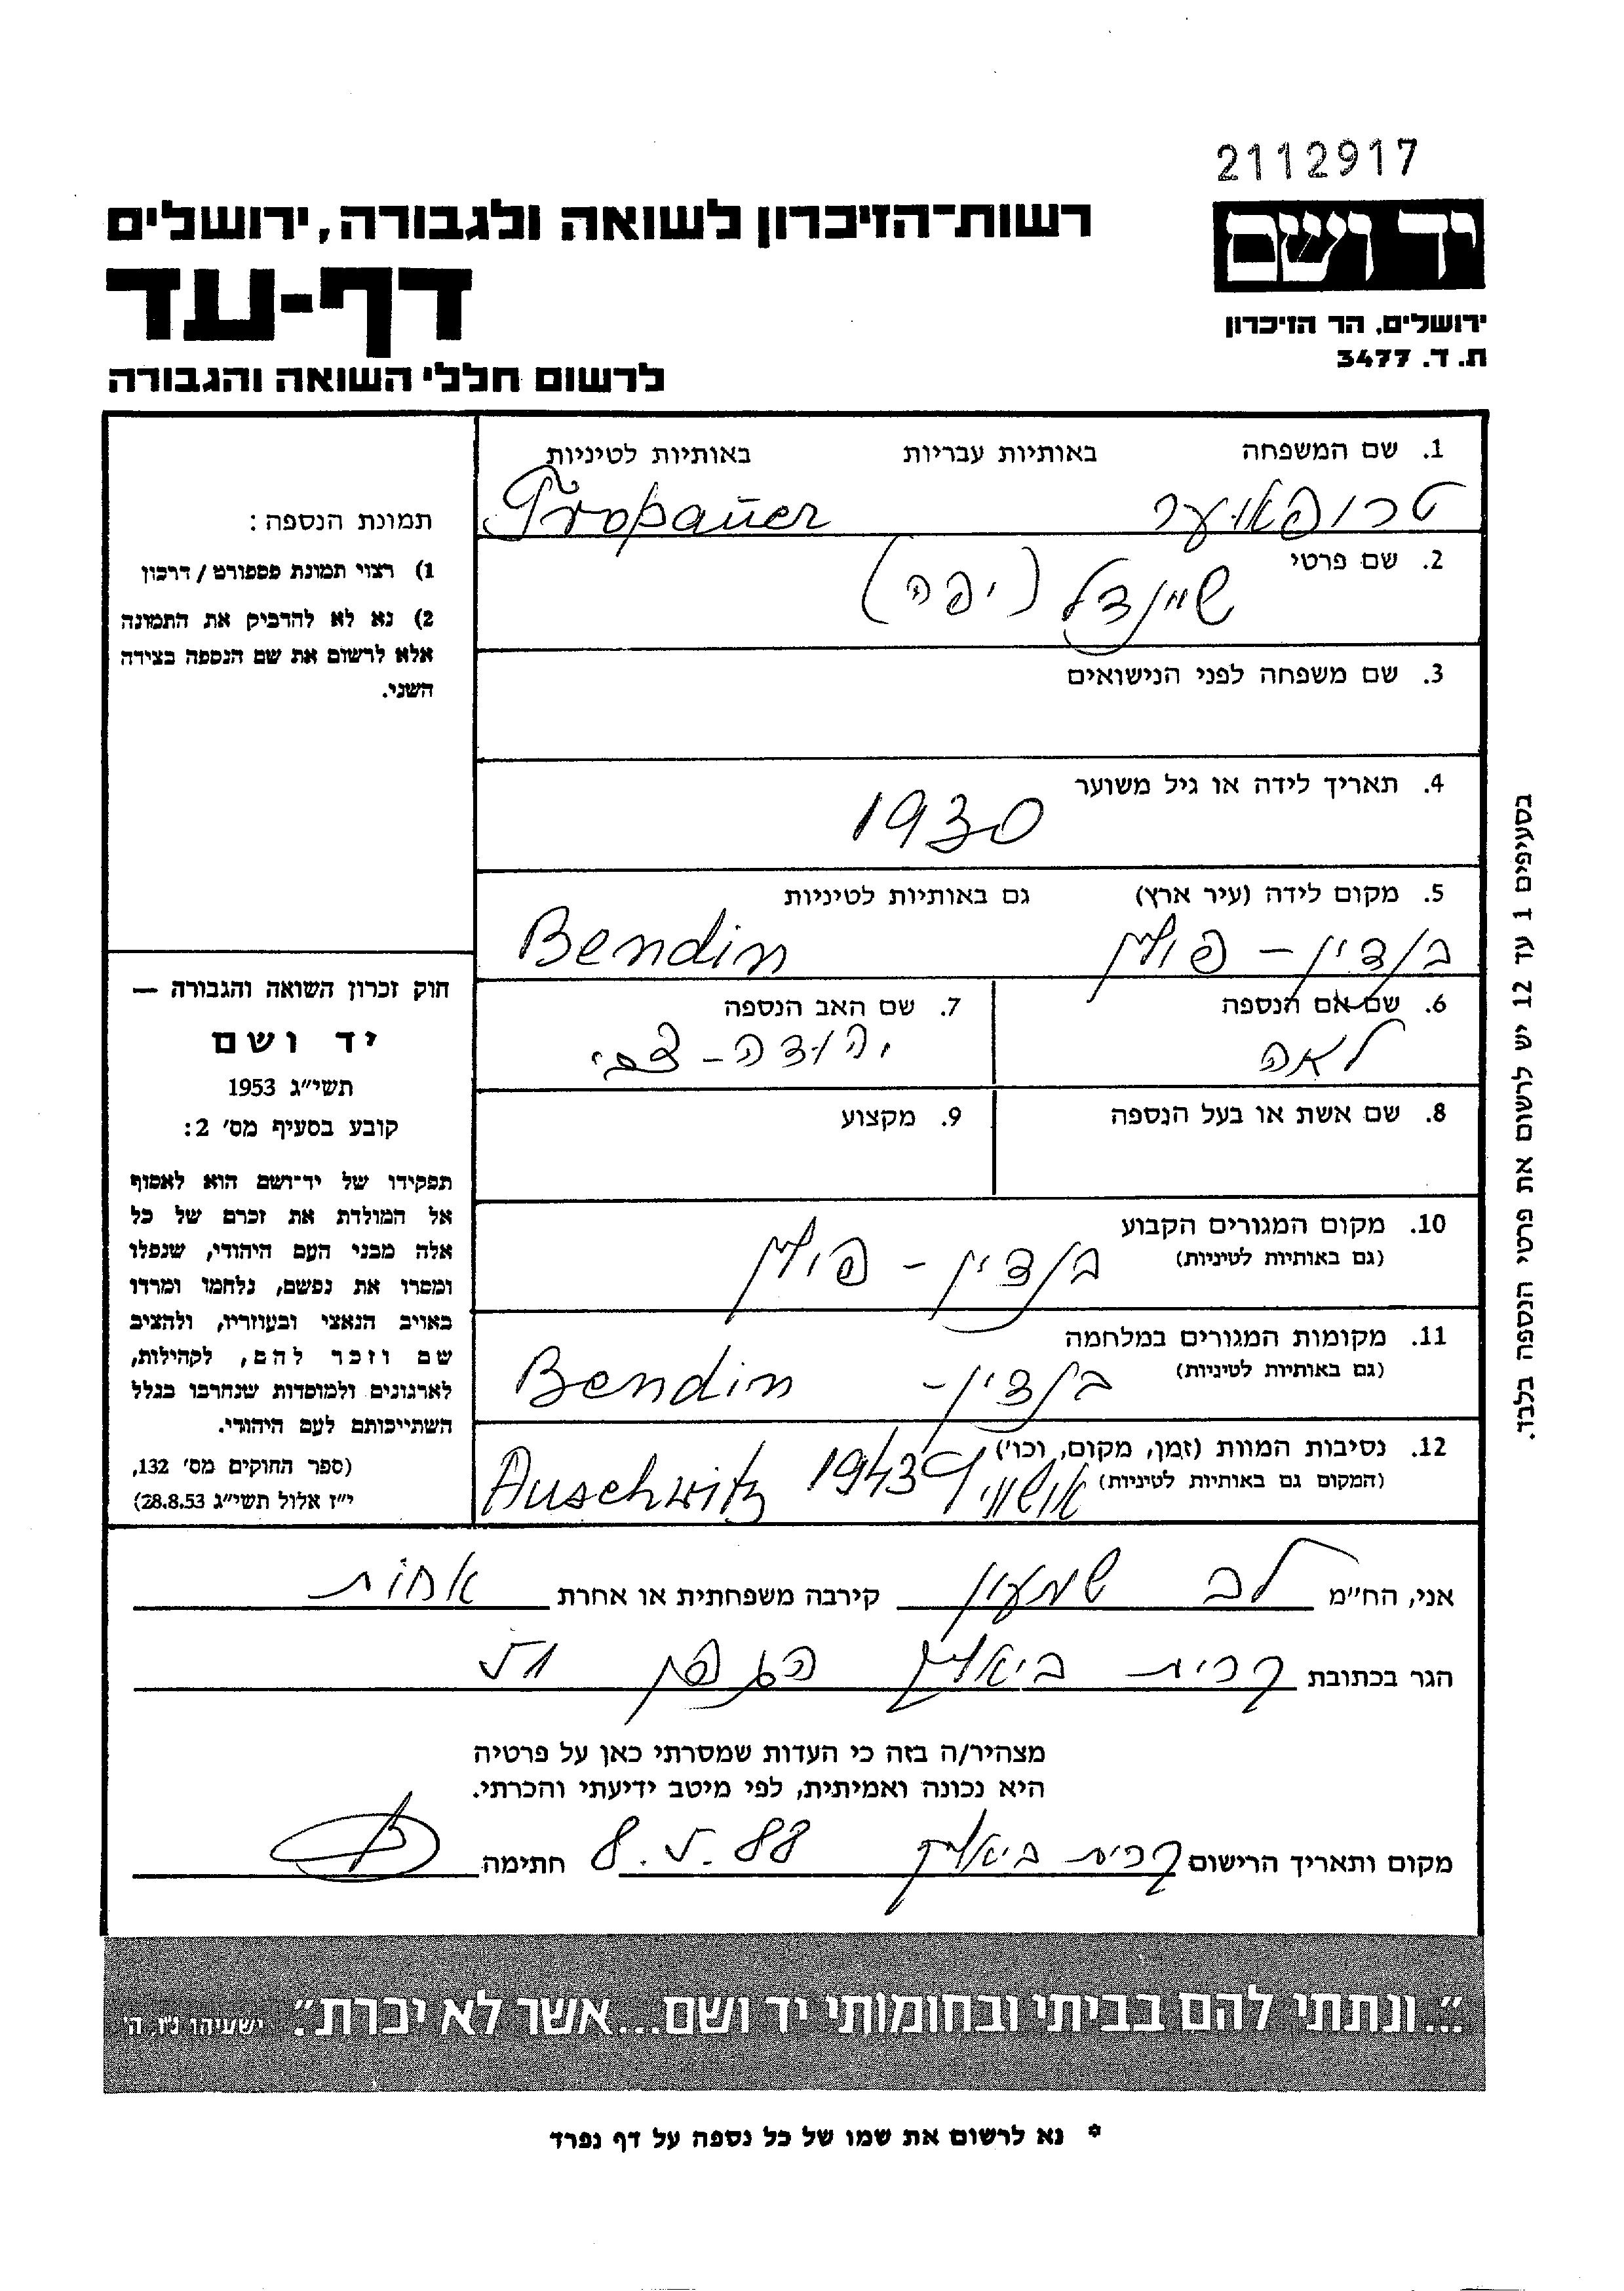 2112917
יד ושם
רשות־הזיכרון לשואה ולגבורה, ירושלים
דף-עד
ירושלים, הר הזיכרון
ת. ד. 3477
לרשום חללי השואה והגבורה
1. שם המשפחה באותיות עבריות באותיות לטיניות
טרופאוער Tropaüer
2. שם פרטי
שיינדל (יפה)
3. שם משפחה לפני הנישואים
4. תאריך לידה או גיל משוער
1930
5. מקום לידה (עיר ארץ) גם באותיות לטיניות
בנדין – פולין Bendin
6. שם אם הנספה 7. שם האב הנספה
לאה יהודה - צבי
8. שם אשת או בעל הנספה 9. מקצוע
10. מקום המגורים הקבוע
(גם באותיות לטיניות)
בנדין – פולין
11. מקומות המגורים במלחמה
(גם באותיות לטיניות)
בנדין - Bendin
12. נסיבות המוות (זמן, מקום, וכו')
(המקום גם באותיות לטיניות)
אושוויץ 1943 Auschwitz
תמונת הנספה:
1) רצוי תמונת פספורט / דרכון
2) נא לא להדביק את התמונה
אלא לרשום את שם הנספה בצידה
השני.
חוק זכרון השואה והגבורה —
יד ושם
תשי״ג 1953
קובע בסעיף מס׳ 2:
תפקידו של יד־ושם הוא לאסוף
אל המולדת את זכרם של כל
אלה מבני העם היהודי, שנפלו
ומסרו את נפשם, נלחמו ומרדו
באויב הנאצי ובעוזריו, ולהציב
שם וזכר להם, לקהילות,
לארגונים ולמוסדות שנחרבו בגלל
השתייכותם לעם היהודי.
(ספר החוקים מס׳ 132,
י״ז אלול תשי״ג 28.8.53)
בסעיפים 1 עד 12 יש לרשום את פרטי הנספה בלבד.
אני, הח״מ לב שמעון קירבה משפחתית או אחרת אחות
הגר בכתובת קרית ביאליק הגפן 15
מצהיר/ה בזה כי העדות שמסרתי כאן על פרטיה
היא נכונה ואמיתית, לפי מיטב ידיעתי והכרתי.
מקום ותאריך הרישום קרית ביאליק 8.5.88 חתימה
״...ונתתי להם בביתי ובחומותי יד ושם...אשר לא יכרת״. ישעיהו נ״ו, ה׳
* נא לרשום את שמו של כל נספה על דף נפרד